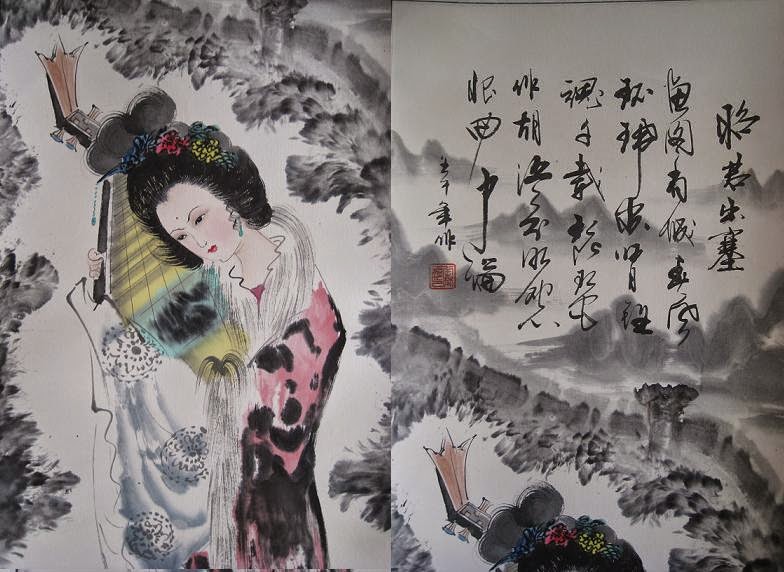 昭君出塞
画图省识春风
环珮空归月夜
魂千载琵琶
作胡语分明怨
恨曲中论
年作